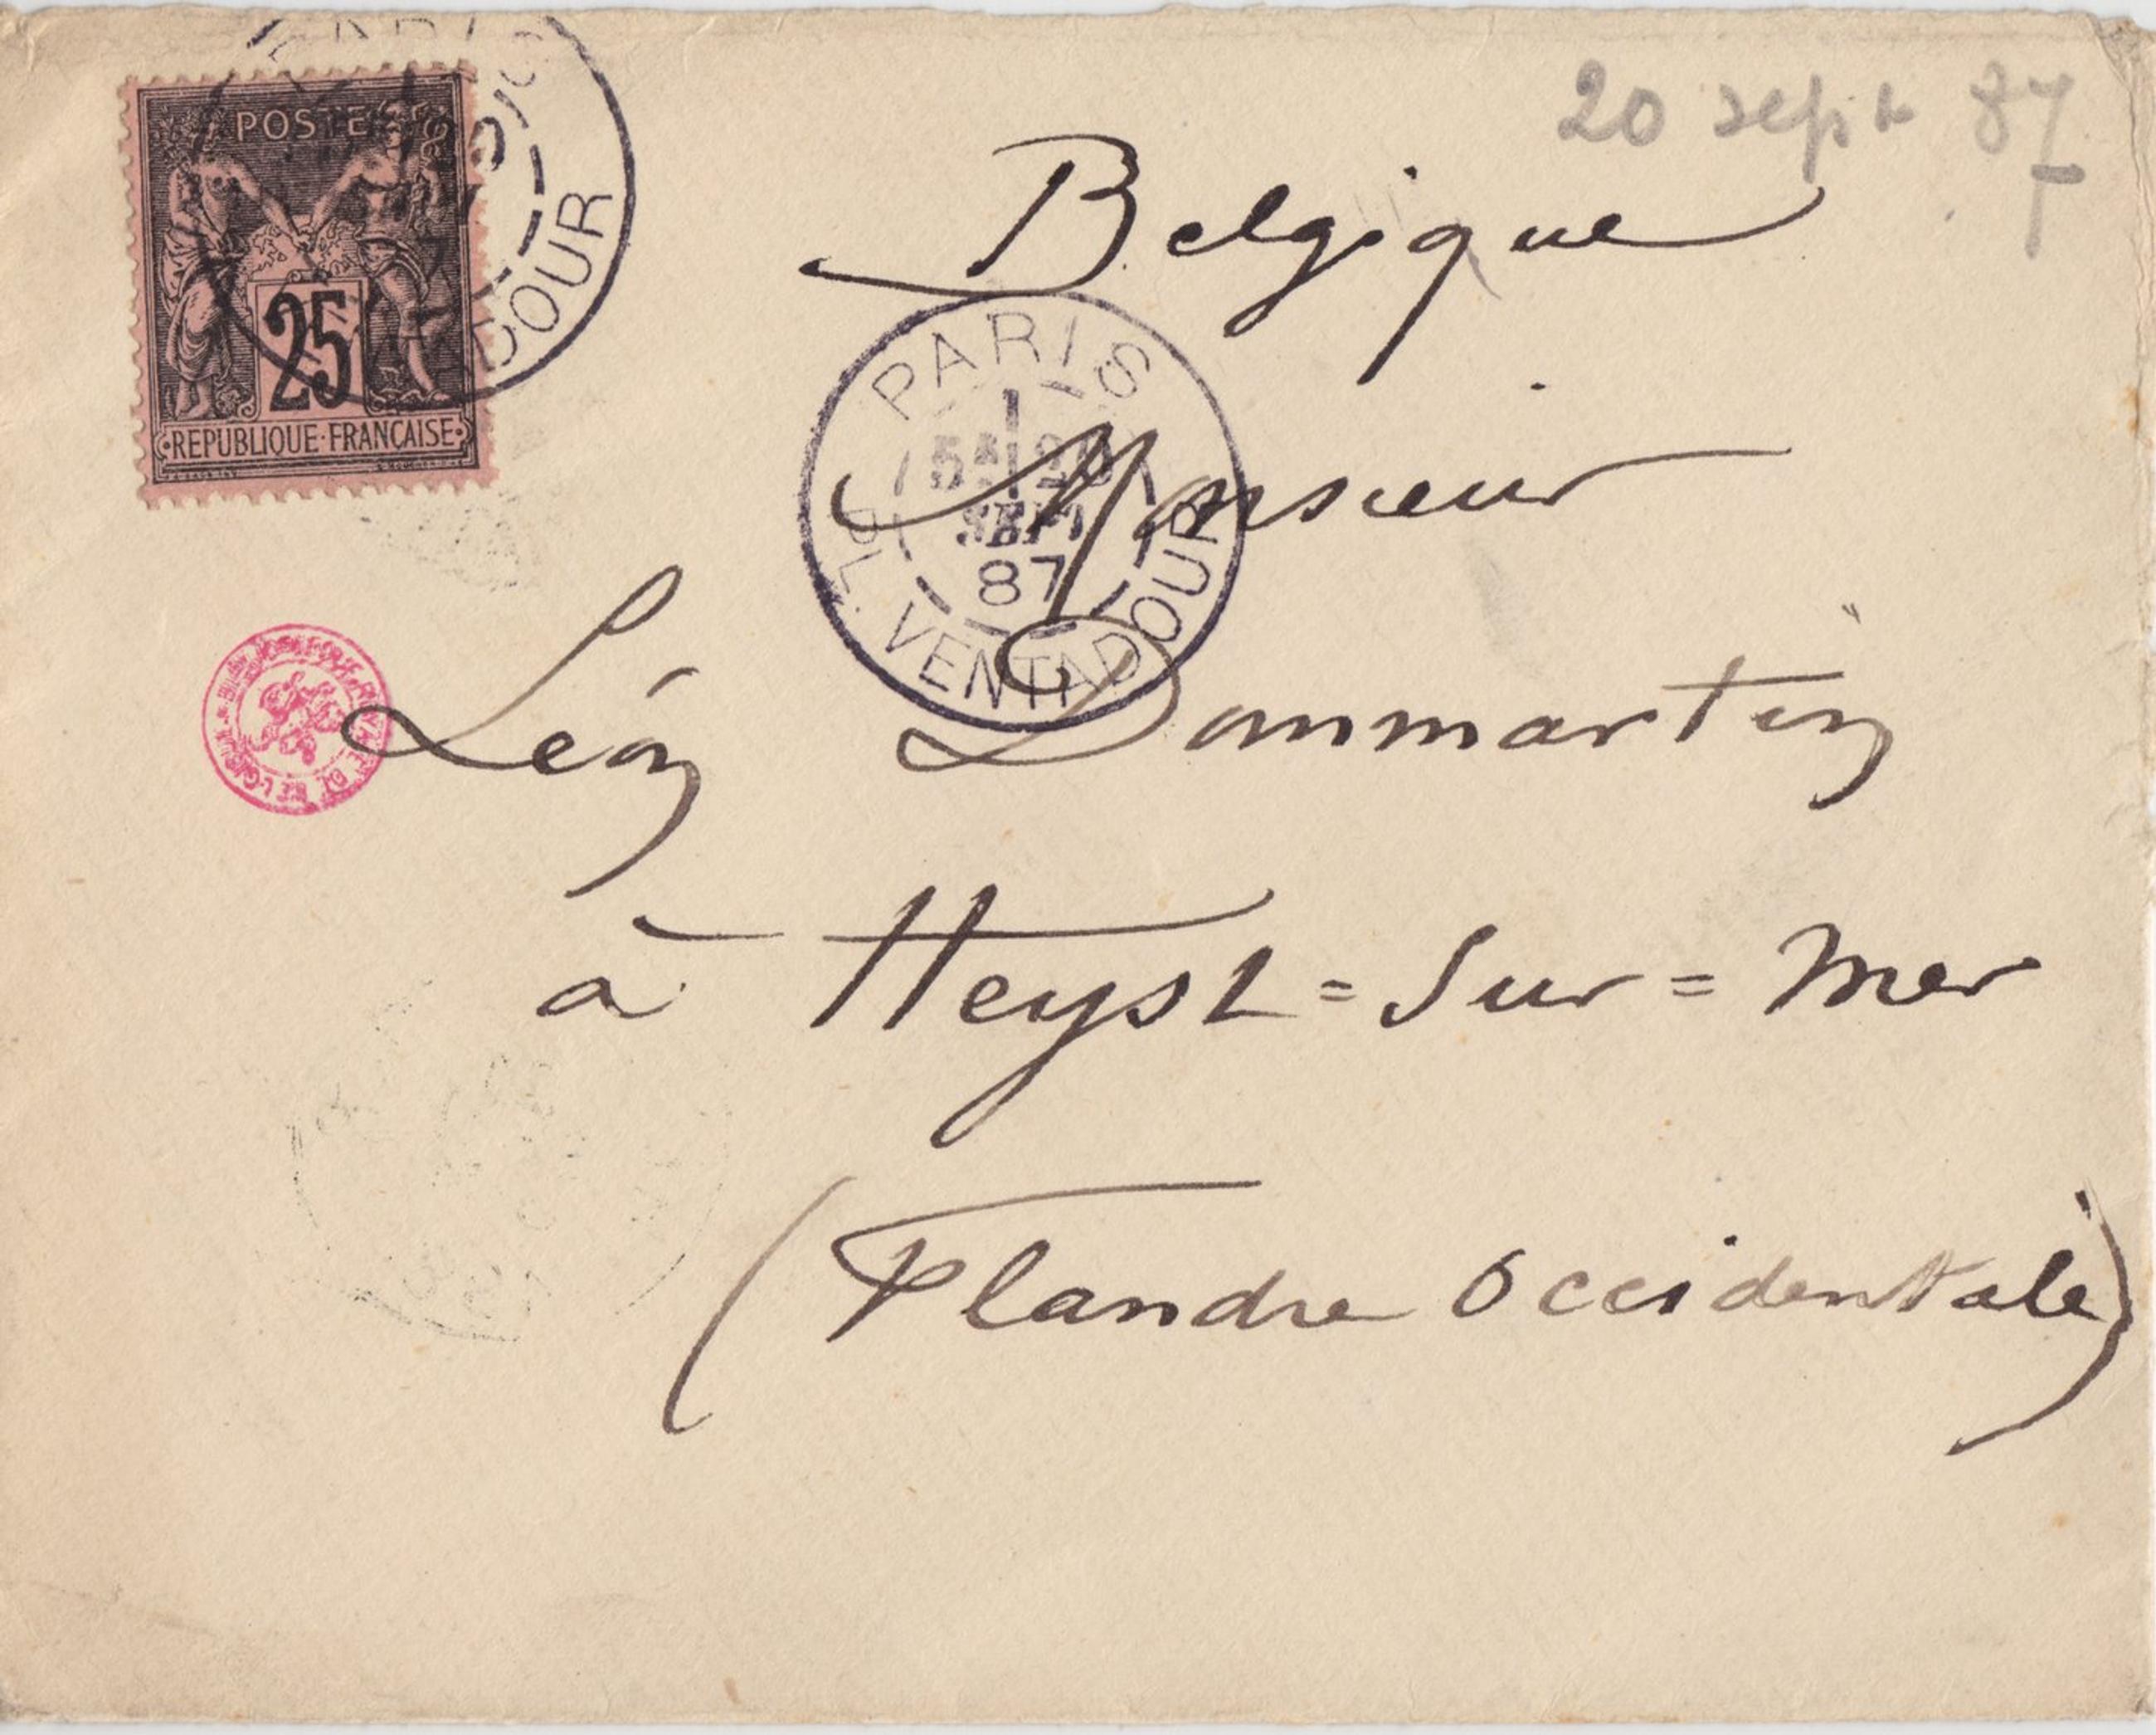 20 sept 87
POSTE
25
REPUBLIQUE·FRANÇAISE
DOUR
Belgique
PARIS
SEPT
87
PL. VENTADOUR
Monsieur
Léon Danmartin
à Heyst=Sur=Mer
(Flandre Occidentale)